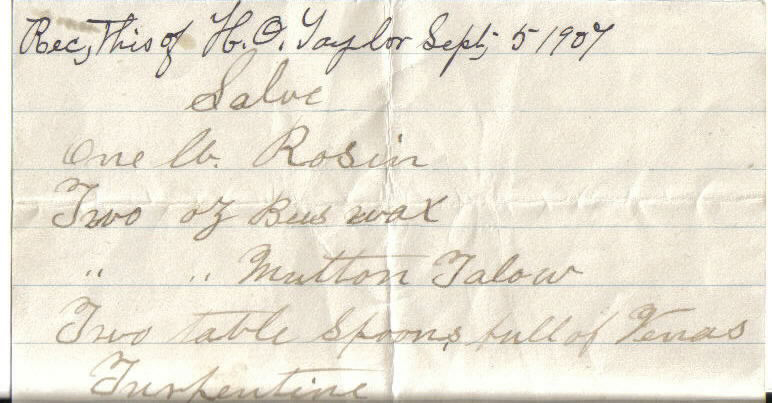 Rec, this of H. O. Taylor Sept, 5 1907
Salve
One lb. Rosin
Two oz Bees wax
" " Mutton Talow
Two table Spoons full of Venas
Turpentine